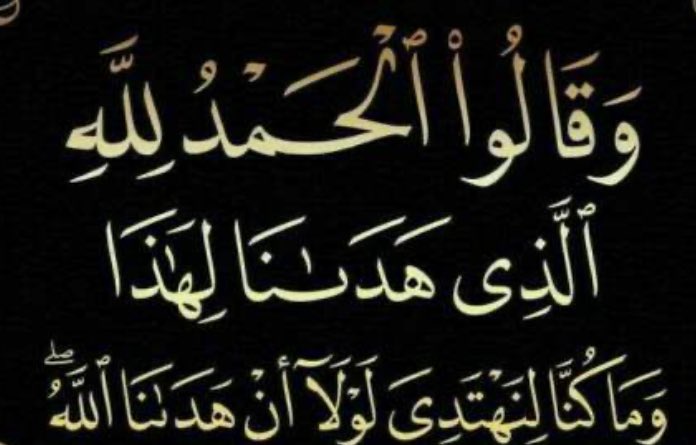 وَقَالُوا۟ ٱلْحَمْدُ لِلَّهِ
ٱلَّذِى هَدَىٰنَا لِهَٰذَا
وَمَا كُنَّا لِنَهْتَدِىَ لَوْلَآ أَنْ هَدَىٰنَا ٱللَّهُ ۖ